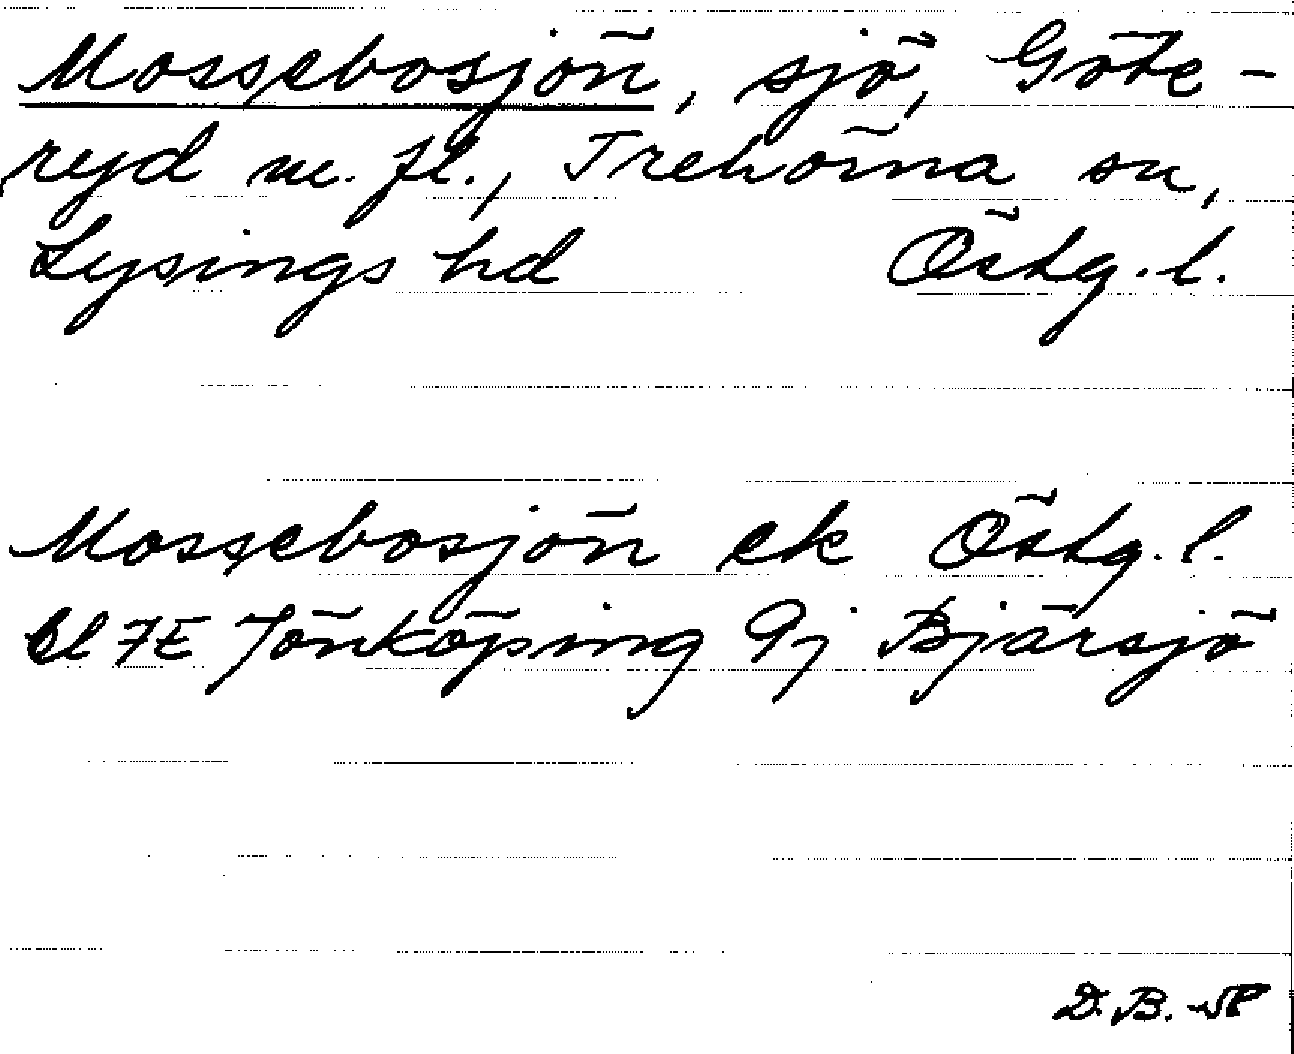 Mossebosjön, sjö, Göte-
ryd m. fl., Trehörna sn,
Lysings hd Östg. l.
Mossebosjön ek Östg. l.
Bl 7E Jönköping 9j Bjärsjö
D. B. -58